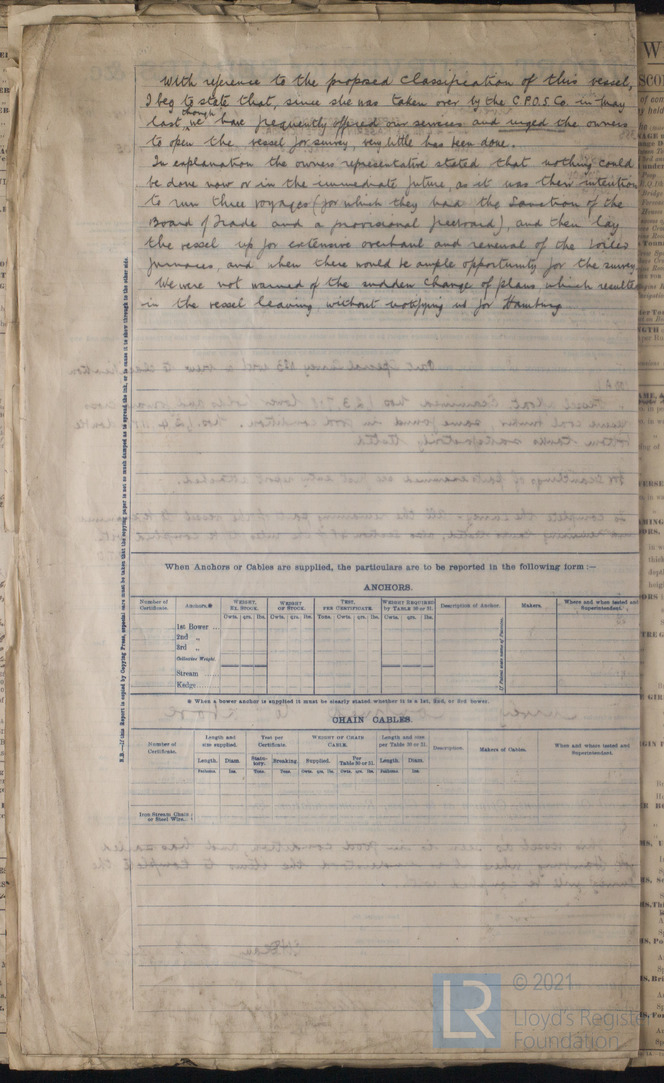 With reference to the proposed Classification of this vessel,
I beg to state that, since she was taken over by the C.P.O.S. Co. in May
last, though we have frequently offered our services and urged the owners
to open the vessel for survey, very little has been done.
In explanation the owners representative stated that nothing could
be done now or in the immediate future, as it was their intention
to run three voyages (for which they had the Sanction of the
Board of Trade and a provisional freeboard), and then lay
the vessel up for extensive overhaul and renewal of the boiler
furnaces, and when there would be ample opportunity for the survey.
We were not warned of the sudden change of plans which resulted
in the vessel leaving, without notifying us for Hamburg.
N.B.—If this Report is copied by Copying Press, especial care must be taken that the copying paper is not so much damped as to spread the ink, or to cause it to show through to the other side.
When Anchors or Cables are supplied, the particulars are to be reported in the following form :—
ANCHORS.
Number of Certificate.
Anchors.*
WEIGHT, EX. STOCK.
WEIGHT OF STOCK.
TEST, PER CERTIFICATE.
WEIGHT REQUIRED BY TABLE 30 or 31.
Description of Anchor.
Makers.
Where and when tested and Superintendent.
Cwts. qrs. lbs. Cwts. qrs. lbs. Tons. Cwts. qrs. lbs. Cwts. qrs. lbs.
1st Bower ...
2nd „
3rd „
Collective Weight.
Stream
Kedge
* When a bower anchor is supplied it must be clearly stated whether it is a 1st, 2nd, or 3rd bower.
CHAIN CABLES.
Number of Certificate.
Length and size supplied.
Test per Certificate.
WEIGHT OF CHAIN CABLE.
Length and size per Table 30 or 31.
Description.
Makers of Cables.
When and where tested and Superintendent.
Length. Diam. Statutory. Breaking. Supplied. Per Table 30 or 31. Length. Diam.
Fathoms. Ins. Tons. Tons. Cwts. qrs. lbs. Cwts. qrs. lbs. Fathoms. Ins.
Iron Stream Chain or Steel Wire..
LR
© 2021
Lloyd's Register
Foundation